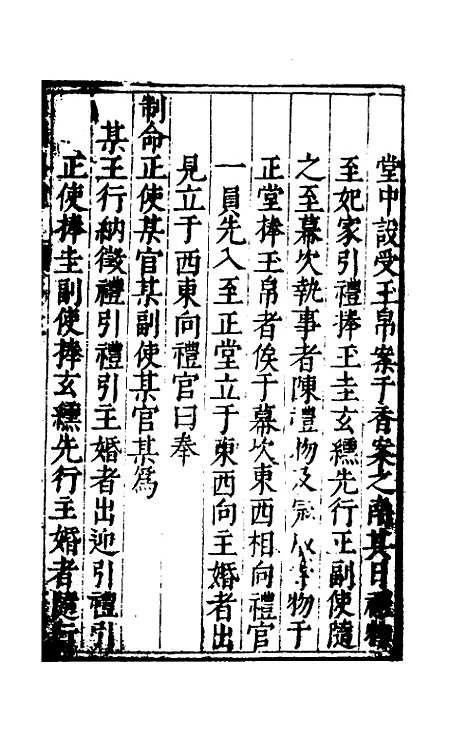 堂中設受玉帛案于香案之南其日禮物
至妃家引禮捧玉圭玄纁先行正副使隨
之至幕次執事者陳禮物及冠服等物于
正堂捧玉帛者俟于幕次東西相向禮官
一員先入至正堂立于東西向主婚者出
見立于西東向禮官曰奉
制命正使某官某副使某官某爲
某王行納徵禮引禮引主婚者出迎引禮引
正使捧圭副使捧玄纁先行主婚者隨行